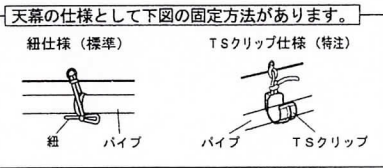 天幕の仕様として下図の固定方法があります。
紐仕様（標準）
TSクリップ仕様（特注）
紐
パイプ
パイプ
TSクリップ